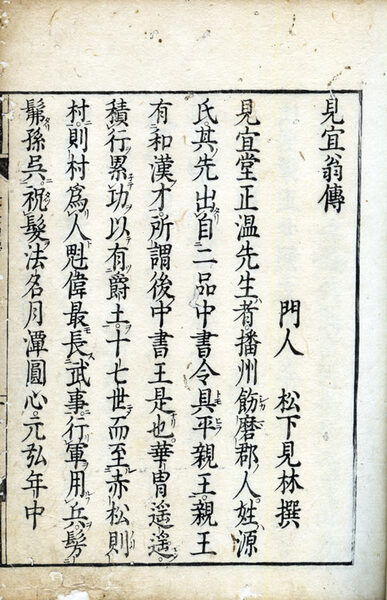 見宜翁傳
門人 松下見林撰
見宜堂正温先生者播州飾磨郡人姓源
氏其先出自二品中書令具平親王親王
有和漢才所謂後中書王是也華冑遙遙
積行累功以有爵土十七世而至赤松則
村則村爲人魁偉最長武事行軍用兵髣
髴孫吳祝髮法名月潭圓心元弘年中